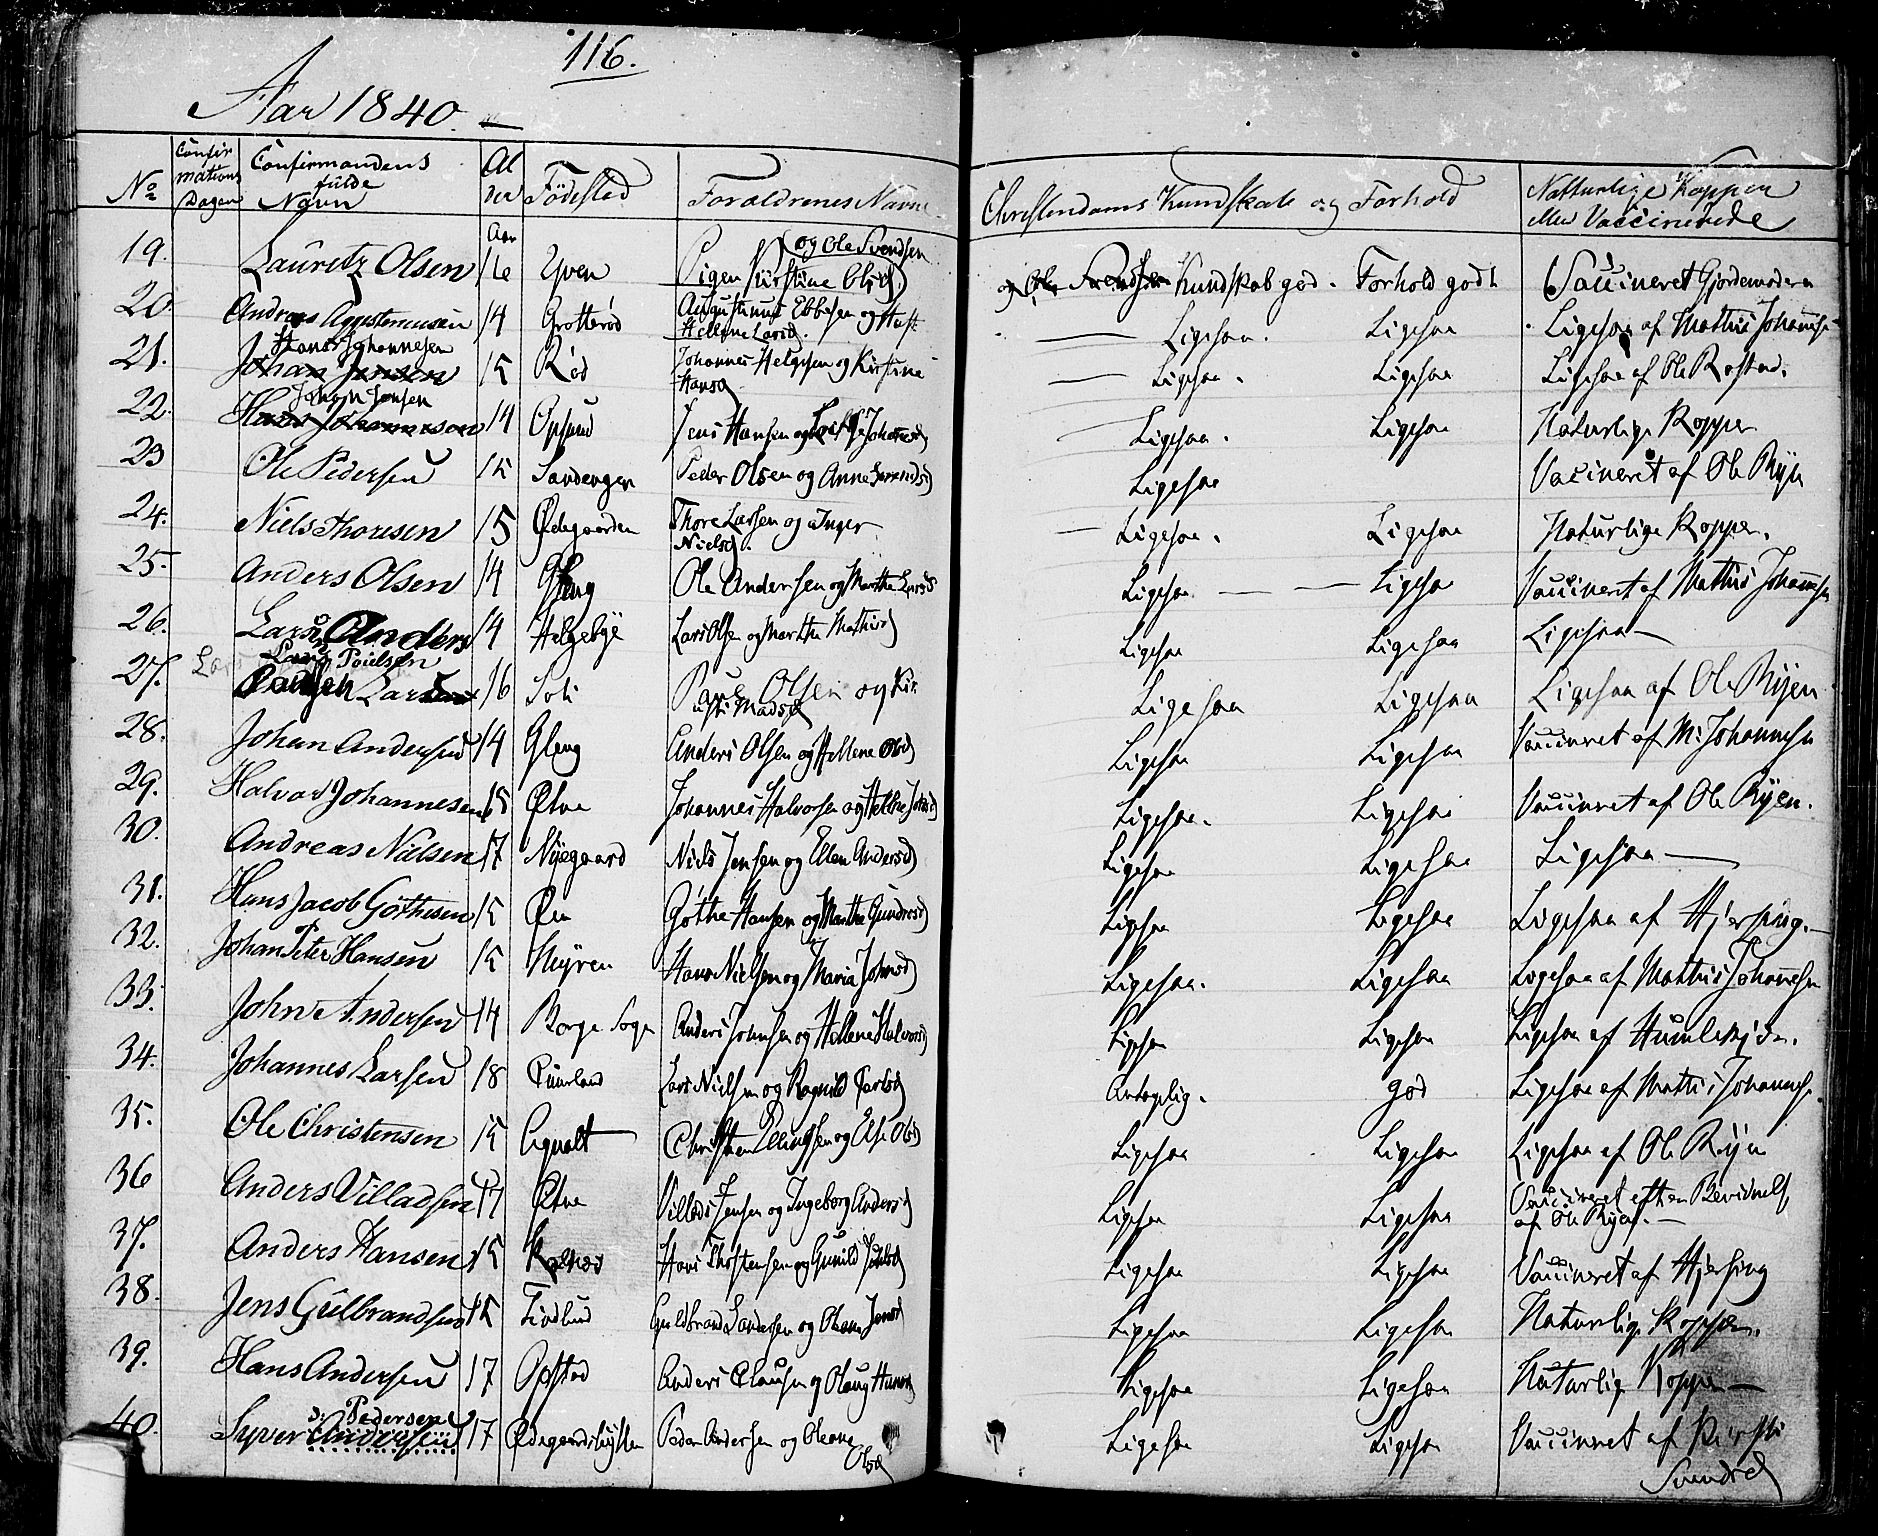 116.
Aar 1840.
No
Confirmations Dagen
Confirmandens fulde Navn
Alder
Födested
Forældrenes Navne
Christendoms Kundskab og Forhold
Natturlige Koppen eller Vaccinerede
Aar
19. Lauritz Olsen 16 Yven Pigen Kirstine Olsd. (og Ole Svendsen og Ole Svendsen Kundskab god. Forhold godt Vaccineret Gjordemoderen
20. Andreas Agustenusen 14 Grotterød Augustinus Ebbesen og Hust. Hellene Larsd. Ligesaa. Ligesaa Ligesaa af Mathis Johannes
21. Hans Johannesen Johan Jensen 15 Rød Johannes Helgesen og Kirstine Hansd Ligesaa. Ligesaa Ligesaa af Ole Rostad.
22. Johan Jensen Hans Johannesen 14 Opsund Jens Hansen og Johannesd Ligesaa. Ligesaa Naturlige Kopper
23 Ole Pedersen 15 Sandengen Peder Olsen og Anne Ligesaa Vacineret af Ole Ryen
24. Niels Thoresen 15 Ødegaarden Thore Larsen og Inger Nielsd. Ligesaa. Ligesaa Naturlige Kopper.
25. Anders Olsen 14 Gleng Ole Andersen og Marthe Larsd Ligesaa Ligesaa Vaccineret af Mathis Johannesen
26. Lars Anders 14 Helgebye Lars Olsen og Marthe Mathisd Ligesaa Ligesaa Ligesaa
27. Lars Lars Poulsen Poulsen Larsen 16 Soli Paul Olsen og Kirsti Madsd Ligesaa Ligesaa Ligesaa af Ole Ryen
28. Johan Andersen 14 Gleng Anders Olsen og Hellene Olsd Ligesaa Ligesaa Vaccineret af M: Johannesen
29. Halvor Johannesen 15 Ødne Johannes Halvorsen og Hellene Ligesaa. Ligesaa Vaccineret af Ole Ryen.
30. Andreas Nielsen 17 Nyegaard Niels Jensen og Ellen Andersd Ligesaa Ligesaa Ligesaa
31. Hans Jacob Göthesen 15 Øen Gøthe Hansen og Marthe Ligesaa Ligesaa Ligesaa af Hjersing.
32. Johan Peter Hansen 15 Myren Hans Nielsen og Maria Johnsd Ligesaa. Ligesaa Ligesaa af Mathis Johannesen
33. John Andersen 14 Borge Sogn Anders Johnsen og Hellene Halvorsd Ligesaa Ligesaa Ligesaa af
34. Johannes Larsen 18 Lars Nielsen og Ragnild Carlsd Antagelig. god Ligesaa af Mathis Johannes
35. Ole Christensen 15 Agnalt Christen Ellingsen og Else Olsd Ligesaa Ligesaa Ligesaa af Ole Ryen
36 Anders Villadsen 17 Ødne Villads Jensen og Ingeborg Andersd Ligesaa Ligesaa Vaccineret efter Bevidnelse af Ole Ryen.
37. Anders Hansen 15 Kalnæs Hans Thostensen og Gunild Ligesaa Ligesaa Vaccineret af Hjersing
38. Jens Gulbrandsen 15 Tindlund Guldbrand Andersen og Oleane Jensd Ligesaa Ligesaa Naturlige Kopper.
39. Hans Andersen 17 Opstad Anders Clausen og Olaug Hansd Ligesaa Ligesaa Naturlig Kopper
40. Syver Andersen s: Pedersen 17 Ødegaardshytten Peder Andersen og Oleane Olsd Ligesaa Ligesaa Vaccineret af Kirsti Svendsd